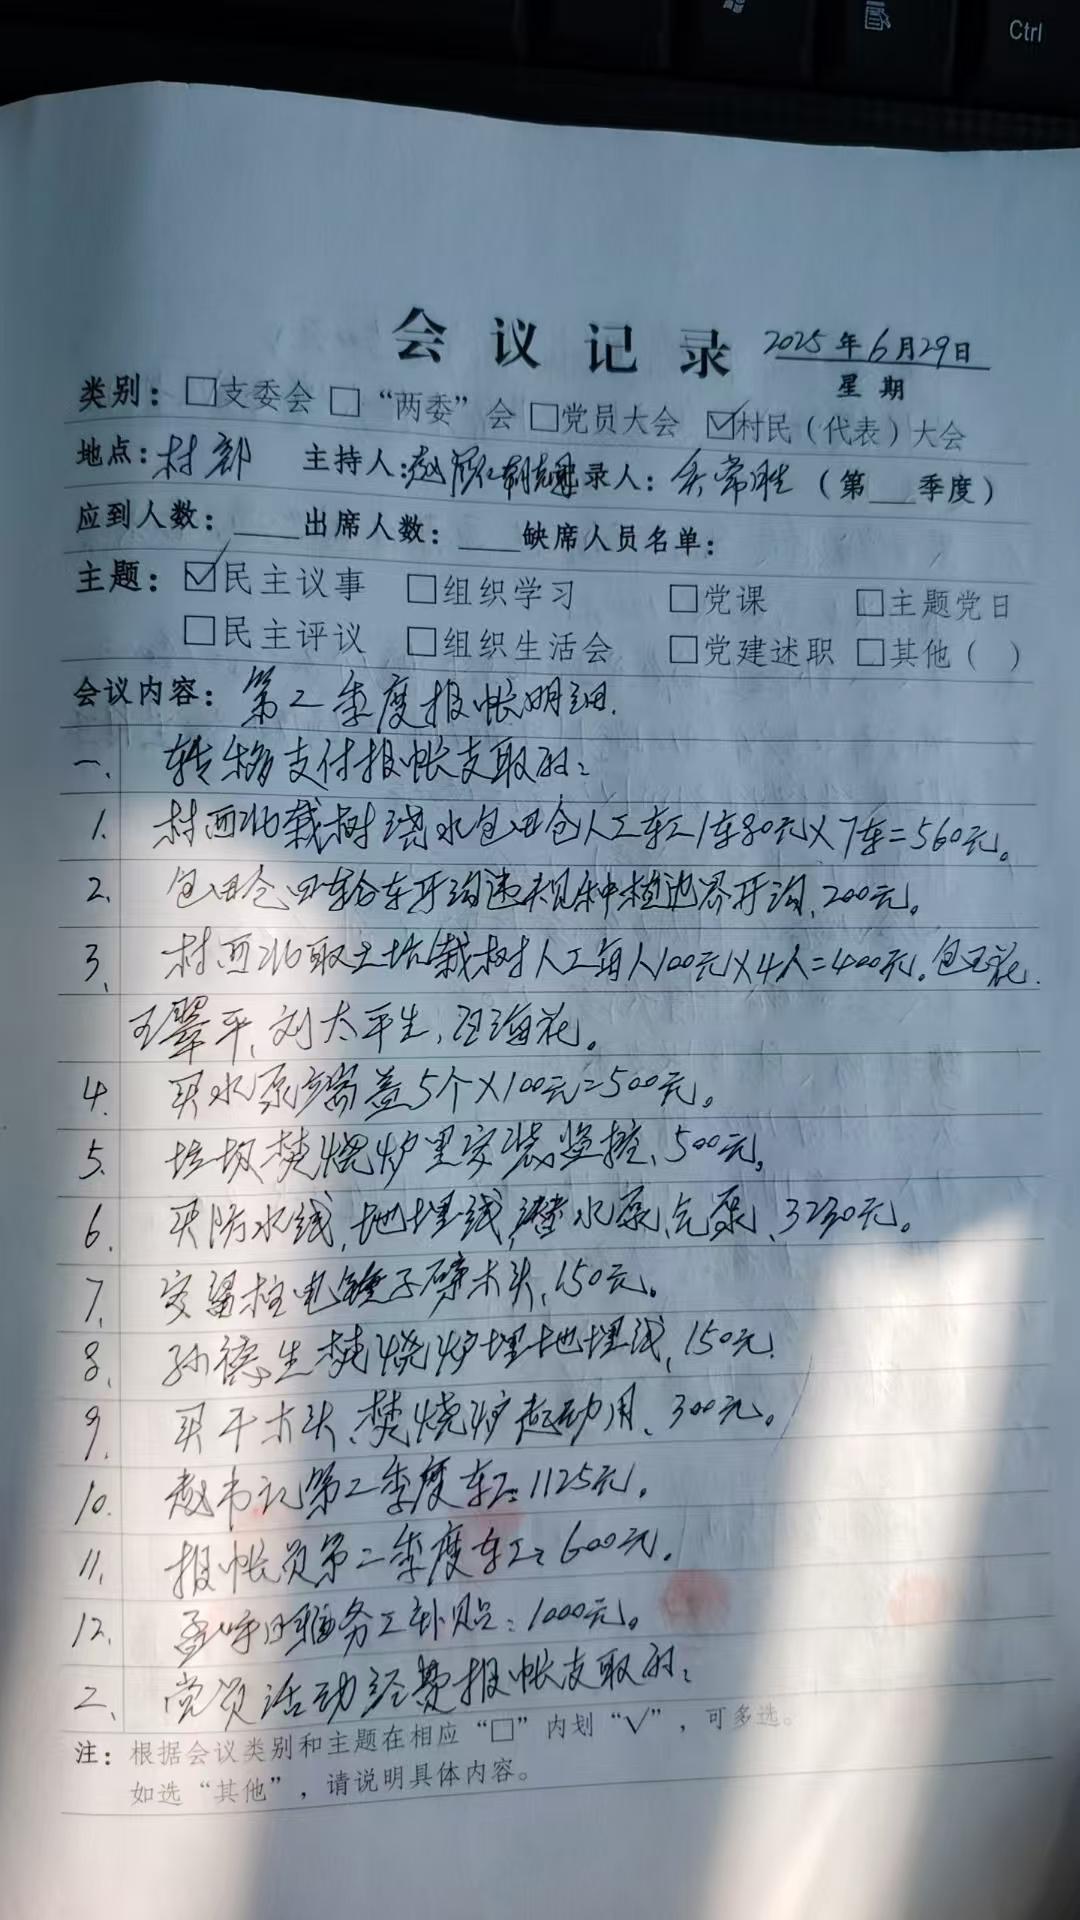 Ctrl
会议记录 2025年6月29日
星期
类别：□支委会 □“两委”会 □党员大会 ☑村民（代表）大会
地点：村部 主持人：赵 录人：常胜（第 季度）
应到人数： 出席人数： 缺席人员名单：
主题：☑民主议事 □组织学习 □党课 □主题党日
□民主评议 □组织生活会 □党建述职 □其他（ ）
会议内容：第二季度报帐明细.
一、转移支付报帐支取的：
1. 村西北栽树浇水包 人工车工1车80元×7车=560元。
2. 包 四轮车开沟违规种植边界开沟、200元。
3、村西北取土坑栽树人工每人100元×4人=400元。包玉花.
王翠平、刘太平生，汪海花。
4. 买水泵端盖5个×100元=500元。
5. 垃圾焚烧炉里安装监控、500元。
6. 买防水线，地埋线，潜水泵，气泵、3230元。
7. 安留柱电锤子劈木头、150元。
8. 孙德生焚烧炉埋地埋线，150元.
9. 买干木头、焚烧炉起动用、300元。
10. 赵书记第二季度车工：1125元。
11. 报帐员第二季度车工：600元.
12. 孟 务工补贴：1000元。
二、党员活动经费报帐支取的：
注：根据会议类别和主题在相应“□”内划“√”，可多选。
如选“其他”，请说明具体内容。